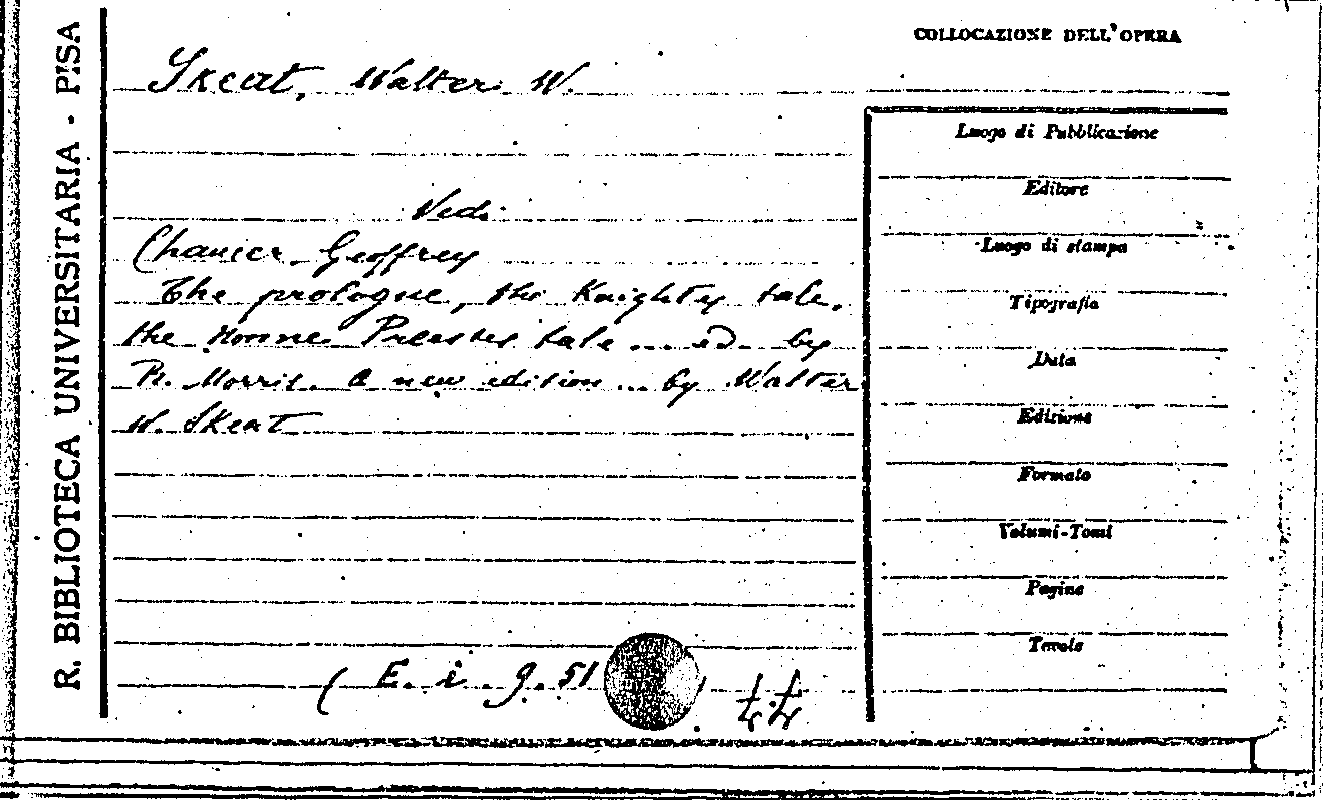 R. BIBLIOTECA UNIVERSITARIA - PISA
COLLOCAZIONE DELL'OPERA
Skeat, Walter W.
Vedi
Chaucer, Geoffrey
The prologue, the Knightes tale,
the Nonne Preestes tale ... ed. by
R. Morris. A new edition ... by Walter
W. Skeat
( E. i. 9. 51 )
Luogo di Pubblicazione
Editore
Luogo di stampa
Tipografia
Data
Edizione
Formato
Volumi-Tomi
Pagine
Tavole